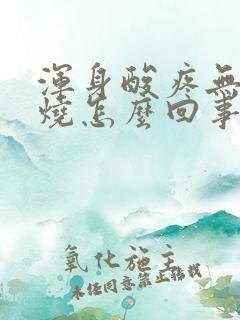 渾身酸疼無
燒怎麼回事
氧化施主
未经同意禁止搭讪